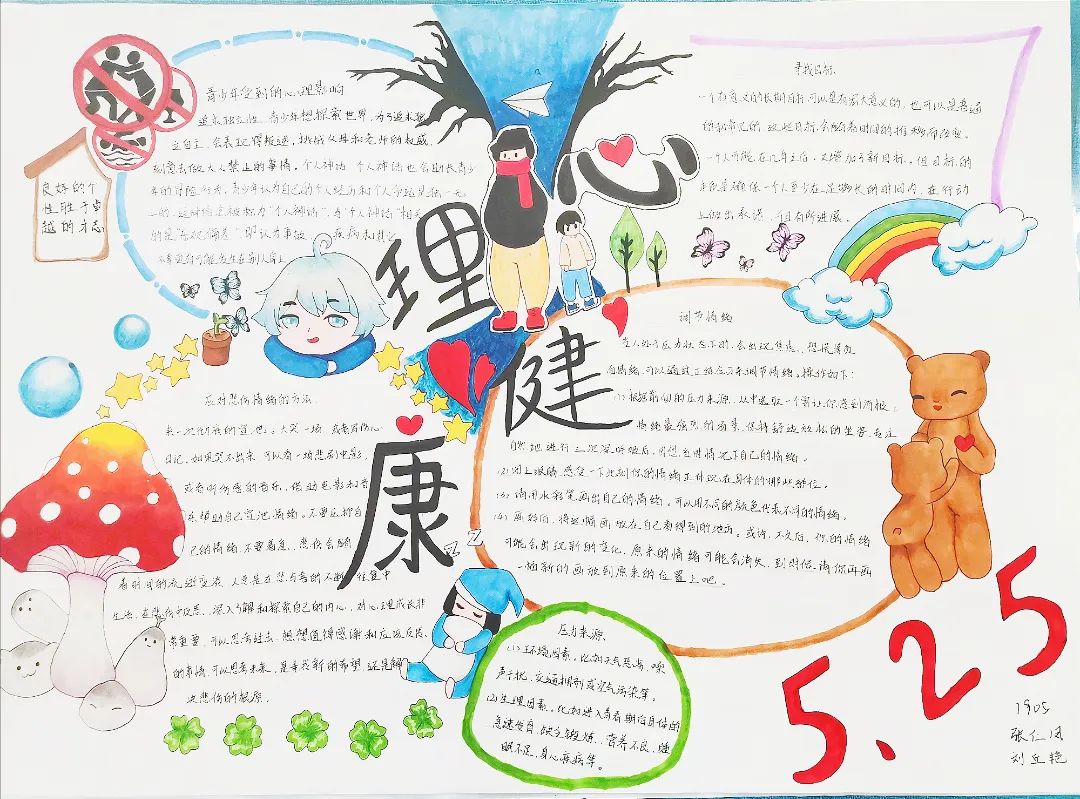 心理健康
良好的个
性胜于卓
越的才态
青少年受到的心理影响
追求独立性。青少年想探索世界,为了追求独
立自主,会表现得叛逆,挑战父母和老师的权威,
刻意去做大人禁止的事情。个人神话 个人神话也会助长青少
年的冒险行为,青少年认为自己的个人经历和个人命运是独一无
二的,这种信念被称为“个人神话”。与“个人神话”相关
的是“乐观偏差”,即认为事故、疾病和其他
不幸更有可能发生在别人身上
寻找目标
一个有意义的长期目标可以是有宏大意义的,也可以是普通
的和常见的,这些目标会随着时间的推移而改变。
一个人可能在几年之后,又增加了新目标。但目标的
关键是确保一个人至少在足够长的时间内,在行动
上做出承诺,并且有所进展。
应对悲伤情绪的方法
来一次彻底的宣泄。大哭一场,或者写伤心
日记,如果哭不出来,可以看一场悲剧电影,
或者听伤感的音乐,借助电影和音
乐帮助自己宣泄情绪。不要压抑自
己的情绪,不要着急,悲伤会随
着时间的流逝变淡,人总是在悲与喜的不断往复中
生活,在悲伤中反思,深入了解和探索自己的内心,对心理成长非
常重要,可以思考过去,想想值得感谢和应该反省
的事情,可以思考未来,是寻找新的希望还是解
决悲伤的根源
调节情绪
当人处于压力状态下时,会出现焦虑、恐慌等负
面情绪,可以通过正念练习来调节情绪。操作如下:
(1)根据前面的压力来源,从中选取一个曾让你感到消极
情绪最强烈的场景,保持舒适放松的坐姿,专注
自然地进行三次深呼吸后,回想在此情况下自己的情绪。
(2)闭上眼睛,感受一下此刻你的情绪正体现在身体的哪些部位。
(3)请用水彩笔画出自己的情绪,可以用不同的颜色代表不同的情绪。
(4)画好后,将这幅画放在自己看得到的地方。或许,不久后,你的情绪
可能会出现新的变化,原来的情绪可能会消失,到时候,请你再画
一幅新的画放到原来的位置上吧。
zz
压力来源
(1)环境因素。比如天气恶劣、噪
声干扰、交通拥挤或空气污染等。
(2)生理因素。比如进入青春期后身体的
急速发育、缺乏锻炼、营养不良、睡
眠不足、身心疾病等。
5、25
1905
张仁凤
刘立艳